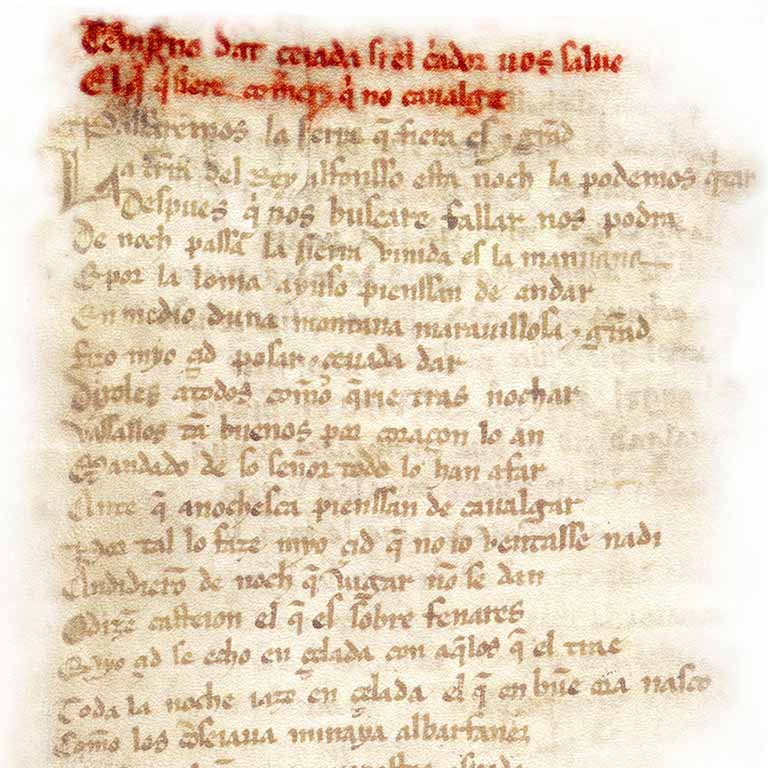 Temprano dat ceuada si el cador uos salue
El q̃ q̃siere comer q̃ no caualge
Passaremos la sierra q̃ fiera es ⁊ grãd
La trra del Rey alfonsso esta noch la podemos q̃tar
Despues q̃ nos buscare fallar nos podra
De noch passã la sierra vinida es la mannana
E por la loma ayuso pienssan de andar
En medio duna montana marauillosa ⁊ grãd
fizo myo çid posar ⁊ ceuada dar
Dixoles atodos com̃o q̃rie tras nochar
vassallos tã buenos por coraçon lo an
Mandado de so señor todo lo han afar
Ante q̃ anochesca pienssan de caualgar
Por tal lo faze myo çid q̃ no lo ventasse nadi
Andidierõ de noch q̃ vagar nõ se dan
Odizẽ casteion el q̃ es sobre fenares
Myo çid se echo en çelada con aq̃los q̃ el trae
Toda la noche iaze en çelada el q̃ en buẽ ora nasco
Como los cõseiaua minaya albarfanez